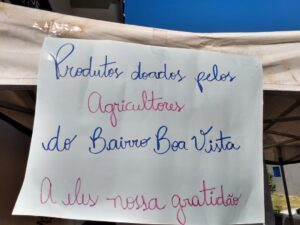 Produtos doados pelos
Agricultores
do Bairro Boa Vista
A eles nossa gratidão